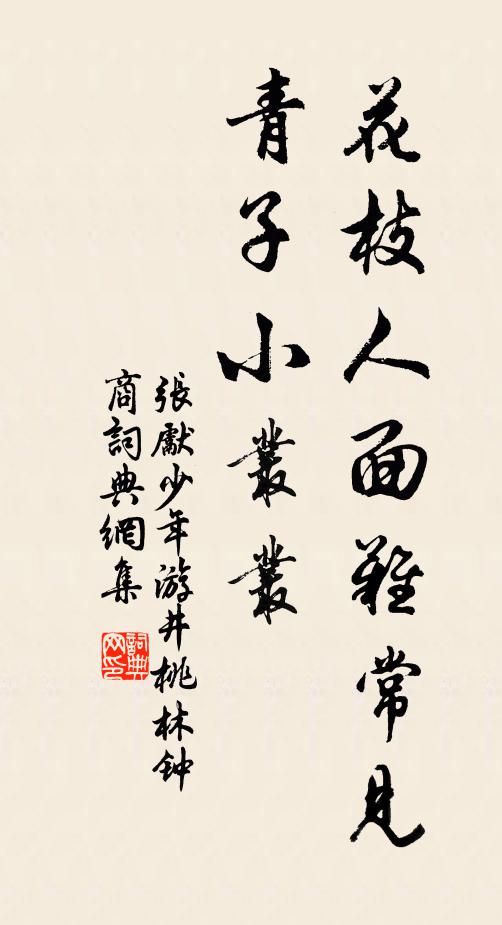 花枝人面難常見
青子小叢叢
張獻少年游井桃林钟
商詞典網集
詞典
网印